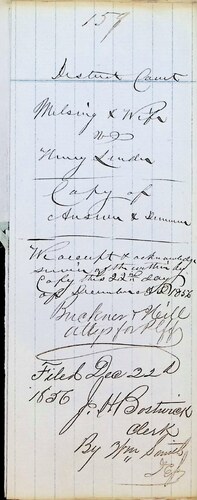 159
District Court
Melsing & Wife
vs
Henry Linder
Copy of
Answer & Demurrer
We accept & acknowledge
service of the within by
Copy this 22nd day
of December AD 1856
Buckner & Hill
attys for Plff
Filed Dec 22d
1856
J. H. Bostwick
Clerk
By Wm Smith